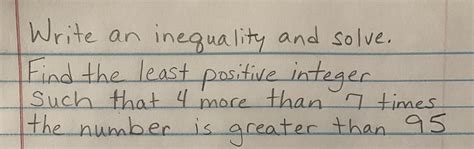 Write an inequality and solve.
Find the least positive integer
Such that 4 more than 7 times
the number is greater than 95